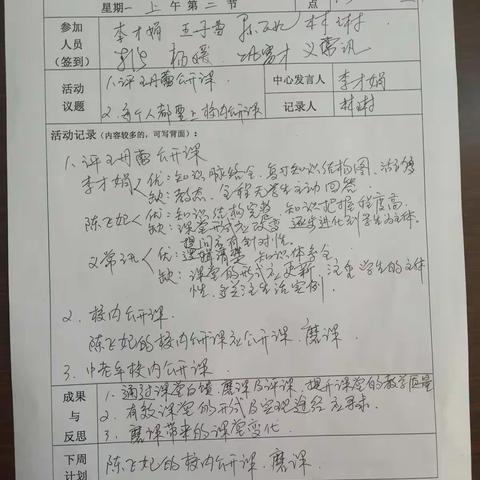 星期一 上午第二节 点
参加人员(签到) 李才娟
杨媛
活动议题 1.评王丹蕾公开课 中心发言人 李才娟
2.每个人都要上校内公开课 记录人 林琳
活动记录(内容较多的,可写背面):
1.评王丹蕾公开课
李才娟 优:知识脉络全,复习知识结构图,活
缺: 全程无学生主动回答.
陈飞妃 优:知识结构完整 知识把握程度高.
缺:课堂形式应改变 逐步进化到学生为主体.
提问应有针对性.
优:逻辑清楚 知识体系全
缺:课堂的形式应更新,注重学生的主体
性,关注生活实例.
2.校内公开课
陈飞妃的校内公开课 公开课.磨课.
3.中老年校内公开课.
成果与反思 1.通过课堂 磨课及评课,提升课堂的教学质量
2.有效课堂的形式及实现途径应寻求.
3.磨课带来的课堂变化.
下周计划 陈飞妃的校内公开课.磨课.